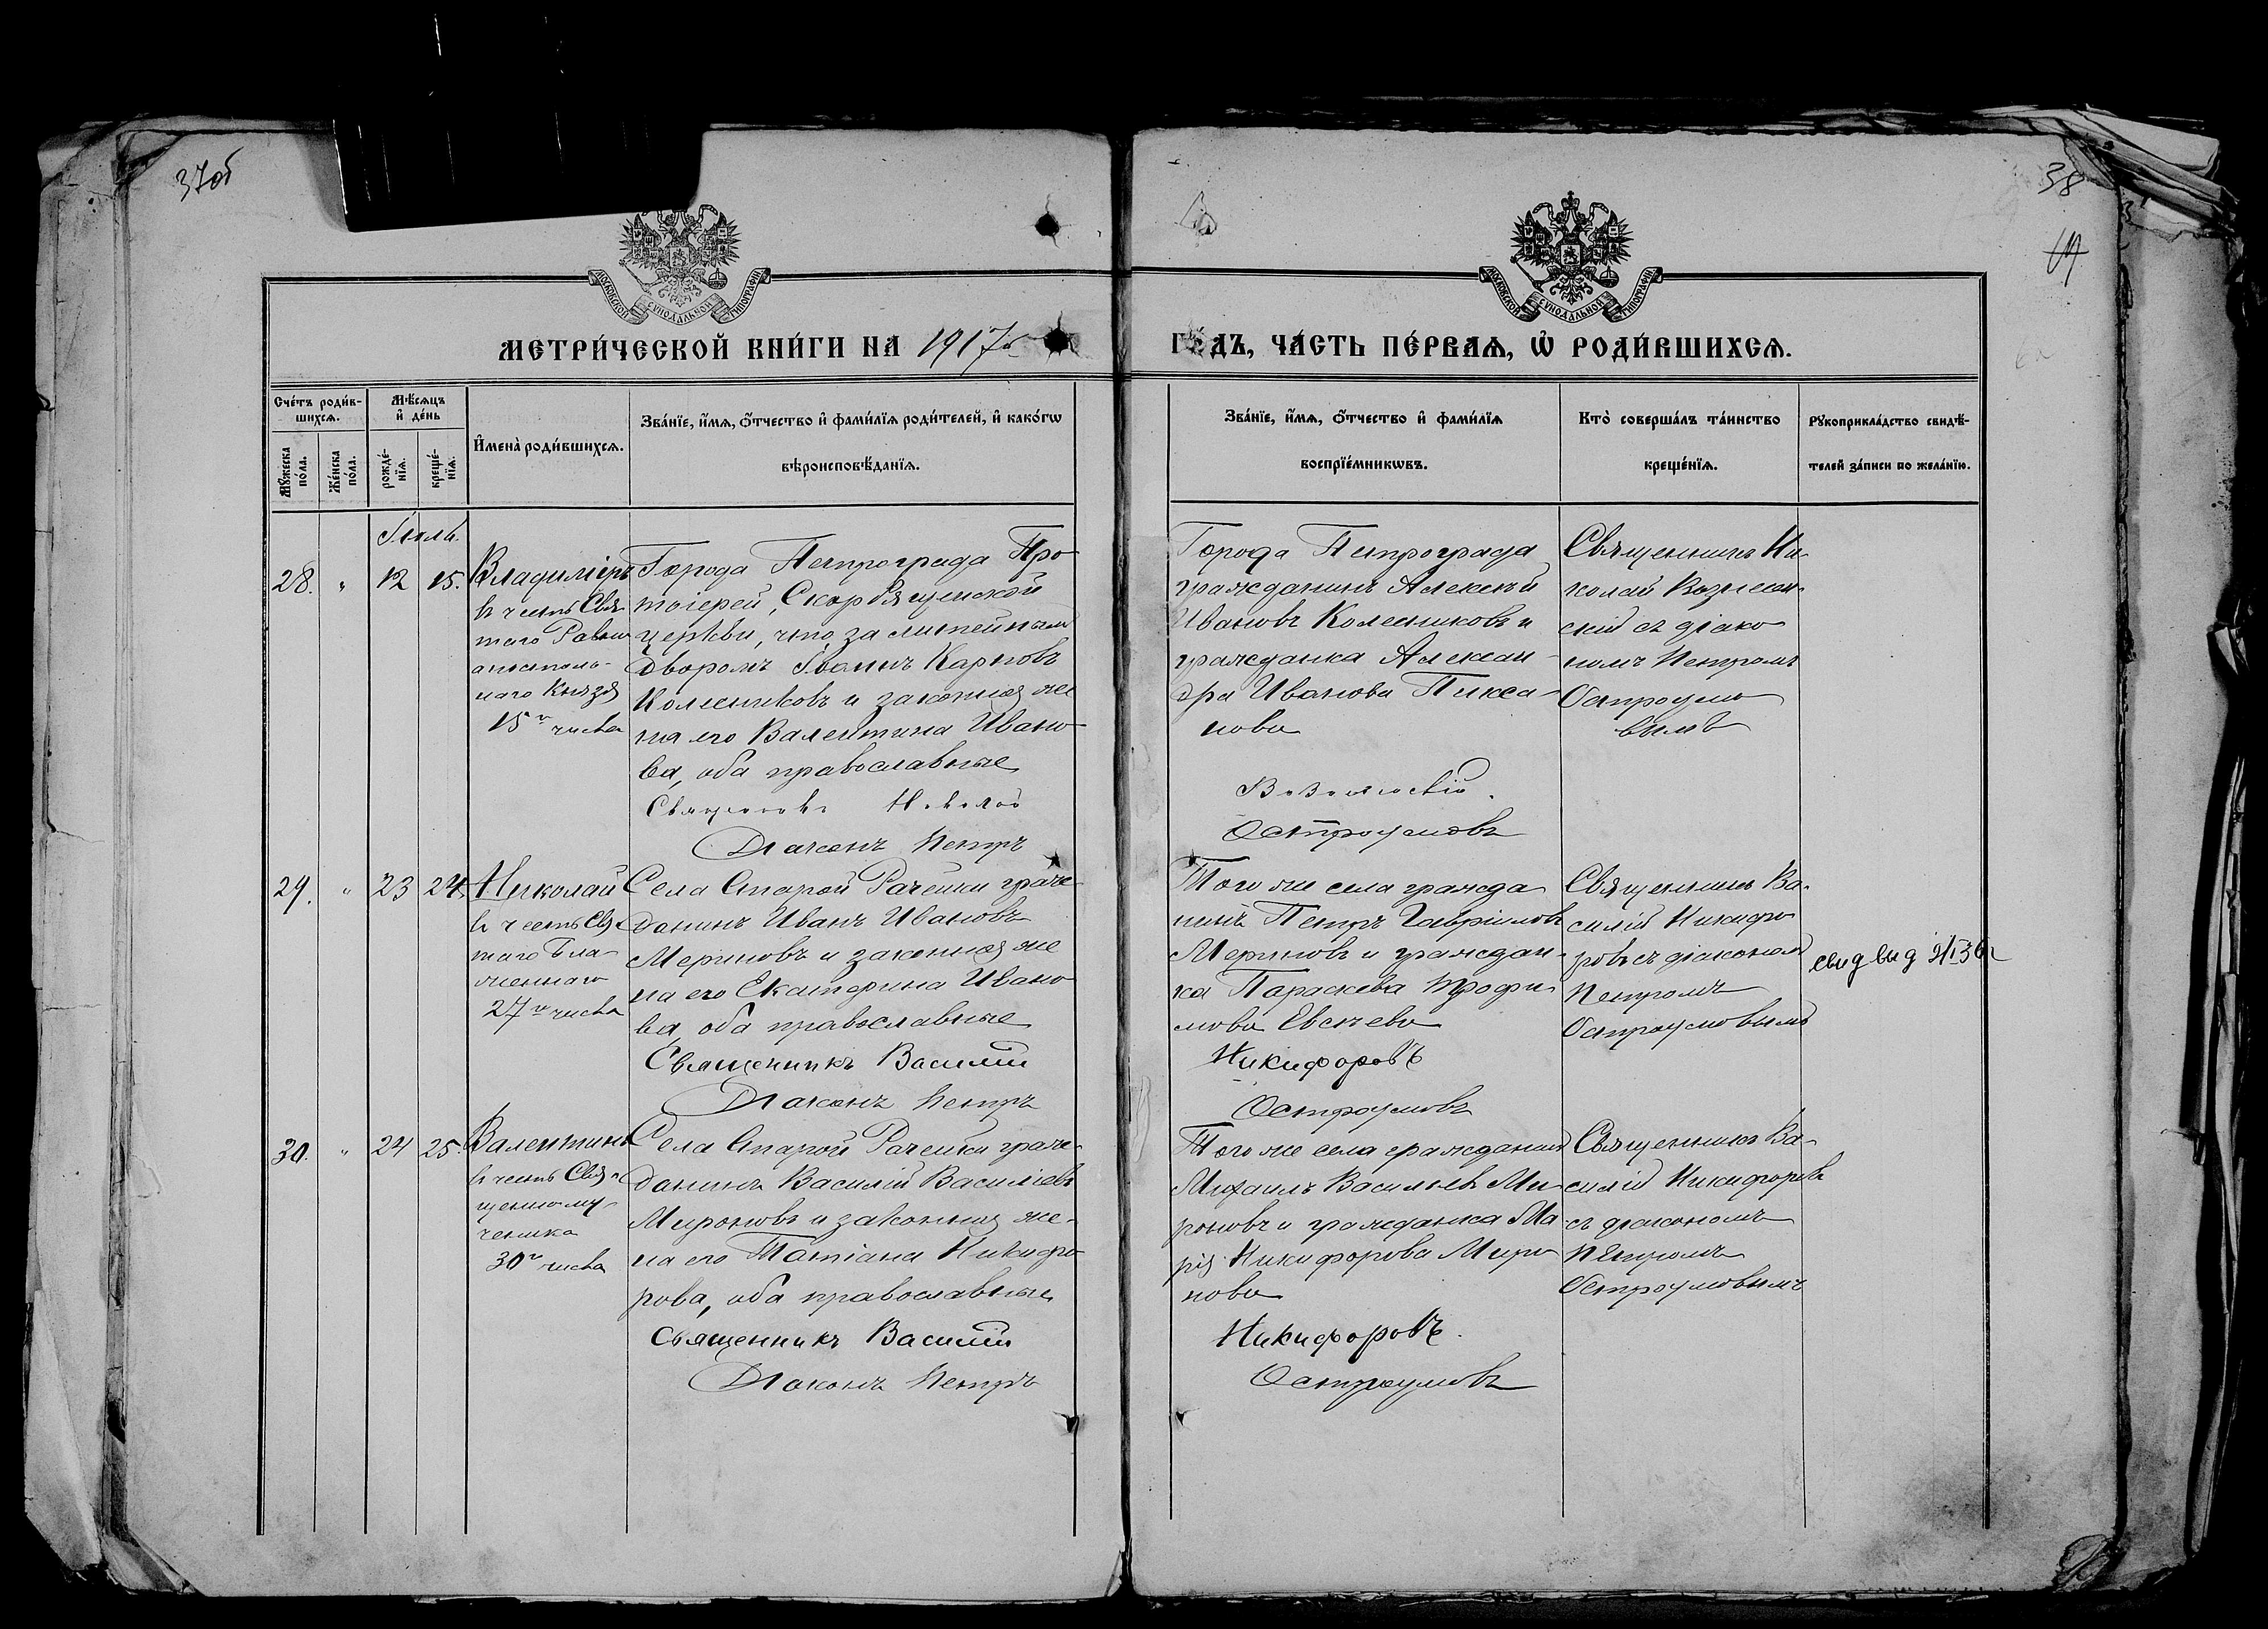 37об
38
МОСКОВСКОЙ СѴНОДАЛЬНОЙ ТИПОГРАФІИ
МОСКОВСКОЙ СѴНОДАЛЬНОЙ ТИПОГРАФІИ
МЕТРИ́ЧЕСКОЙ КНИ́ГИ НА 1917 г.
ГО́ДЪ, ЧА́СТЬ ПЕ́РВАѦ, Ѡ РОДИ́ВШИХСѦ.
Сче́тъ роди́вшихсѧ.
Мꙋ́жеска по́ла.
Же́нска по́ла.
Мѣ́сѧцъ и҆ де́нь
рожде́нїѧ.
креще́нїѧ.
И҆мена̀ роди́вшихсѧ.
Зва́нїе, и҆́мѧ, ѻ҆́тчество и҆ фами́лїѧ роди́телей, и҆ како́гѡ
вѣроисповѣ́данїѧ.
Зва́нїе, и҆́мѧ, ѻ҆́тчество и҆ фами́лїѧ
воспрїе́мникѡвъ.
Кто̀ соверша́лъ та́инство
креще́нїѧ.
Рꙋкоприкла́дство свидѣ́-
телей за́писи по жела́нїю.
Іюль
28. " 12 15.
Владиміръ
в честь Свя-
таго Равно
апостоль-
наго Князя
15го числа
Города Петрограда Про
тоіерей, Скорбященской
церкви, что за литейнымъ
двормъ Іоаннъ Карповъ
Колесниковъ и законная же
на его Валентина Ивано
ва, оба православные
Священникъ Николай
Діаконъ Петръ
Города Петрограда
гражданинъ Алексѣй
Ивановъ Колесниковъ и
гражданка Алексан-
дра Иванова Пикса-
нова
Вознесенскій.
Остроумовъ
Священникъ Ни-
колай Вознесен-
скій съ діако
номъ Петромъ
Остроумо
вымъ
29. " 23 24.
Николай
в честь Свя-
таго Бла-
женнаго
27го числа
Села Старой Рачейки граж-
данинъ Иванъ Ивановъ
Мериновъ и законная же
на его Екатерина Ивано
ва, оба православные
Священникъ Василій
Діаконъ Петръ
Того же села гражда
нинъ Петръ Гавріиловъ
Мериновъ и граждан-
ка Параскева Трофи-
мова Евсѣева
Никифоровъ
Остроумовъ
Священникъ Ва-
силій Никифо
ровъ съ діакономъ
Петромъ
Остроумовымъ
свид выд
30. " 24 25.
Валентинъ
в честь Свя-
щенному-
ченика
30го числа
Села Старой Рачейки граж-
данинъ Василій Васильевъ
Мироновъ и законная же-
на его Татіана Никифо
рова, оба православные
Священникъ Василій
Діаконъ Петръ
Того же села гражданинъ
Михаилъ Васильевъ Ми-
роновъ и гражданка Ма-
рія Никифорова Миро
нова
Никифоровъ.
Остроумовъ
Священникъ Ва-
силій Никифоровъ
съ діакономъ
Петромъ
Остроумовымъ